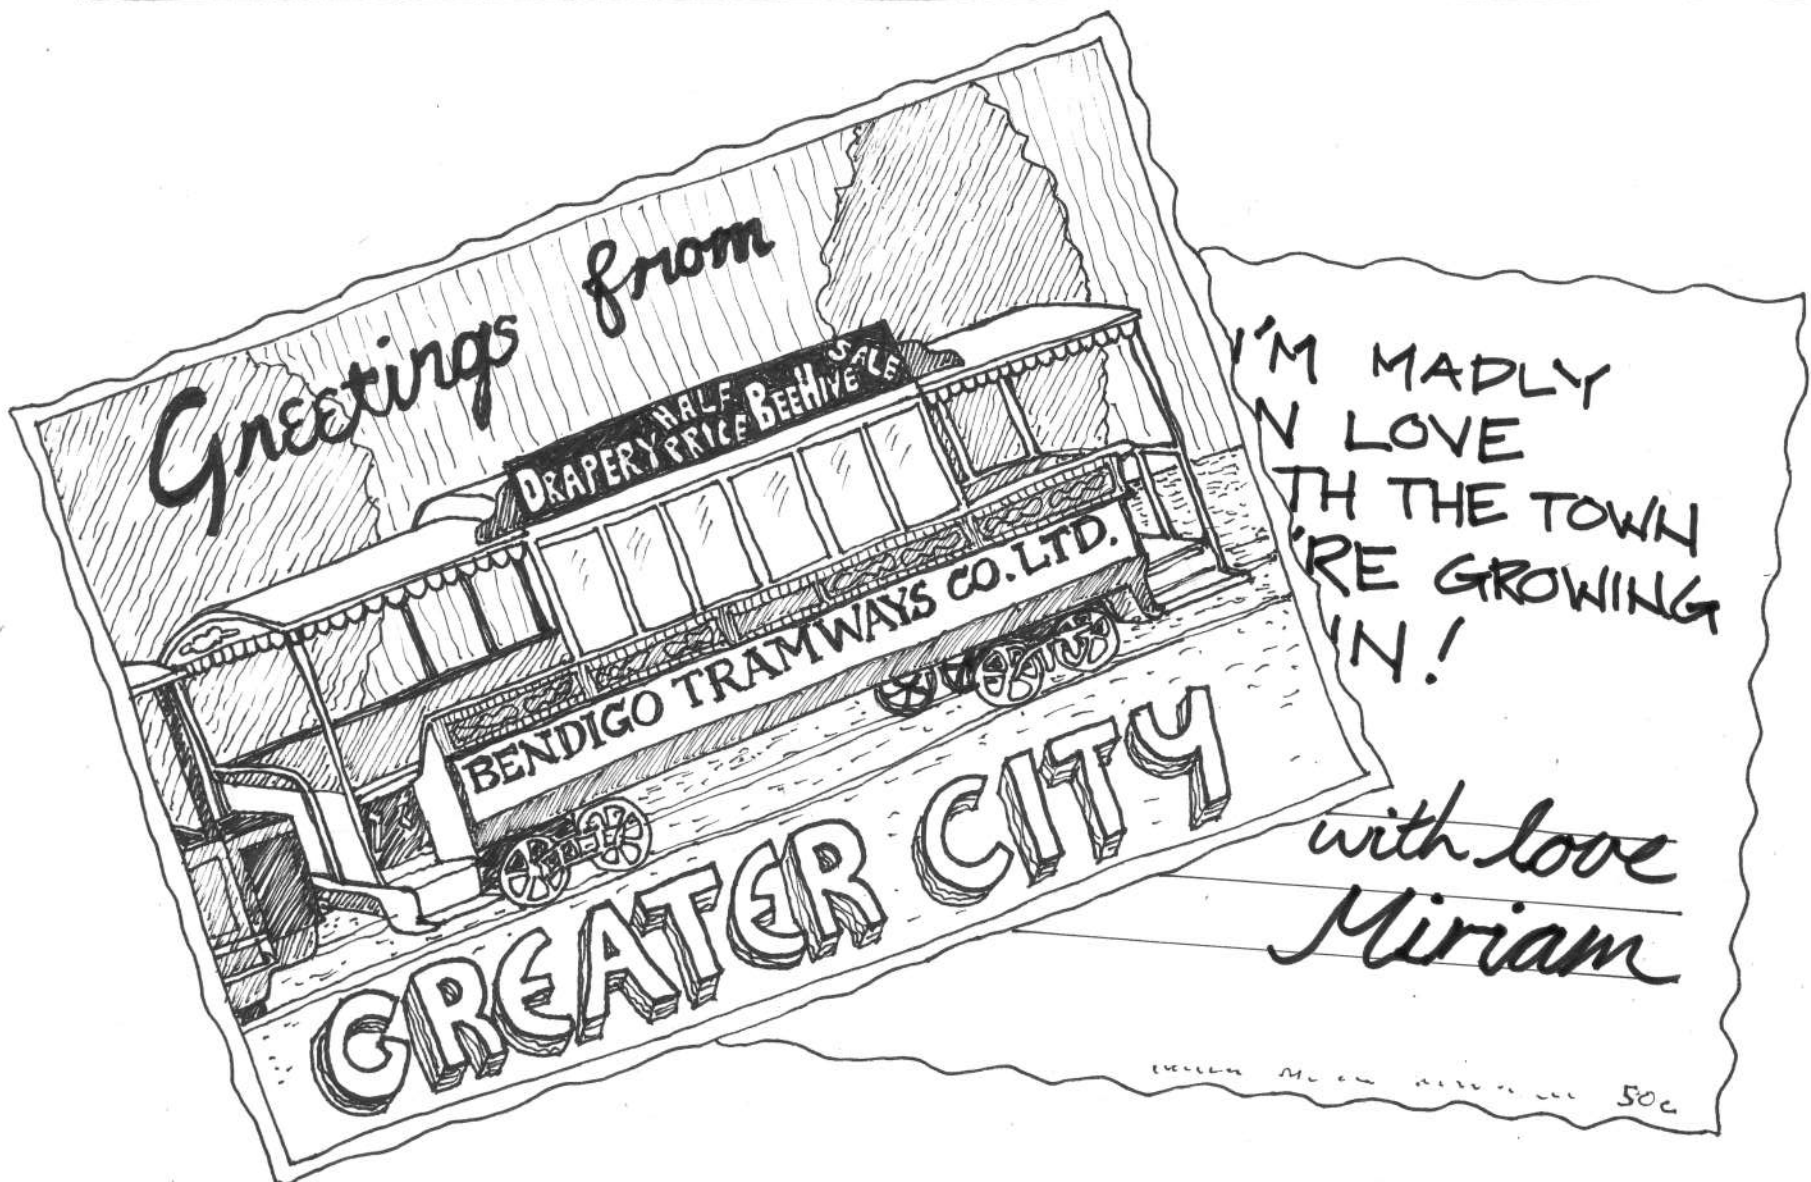 Greetings from
DRAPERY HALF PRICE BEEHIVE SALE
BENDIGO TRAMWAYS CO. LTD.
GREATER CITY
I'M MADLY
N LOVE
TH THE TOWN
'RE GROWING
IN!
with love
Miriam
50c